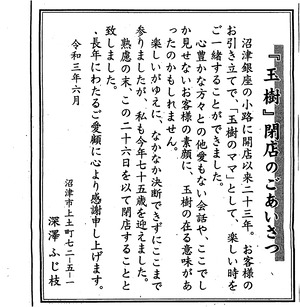 『玉樹』閉店のごあいさつ
沼津銀座の小路に開店以来二十三年。お客様の
お引き立てで、「玉樹のママ」として、楽しい時を
ご一緒することができました。
心豊かな方々との他愛もない会話や、ここでし
か見せないお客様の素顔に、玉樹の在る意味があ
ったのかもしれません。
楽しいがゆえに、なかなか決断できずにここまで
参りましたが、私も今年七十五歳を迎えました。
熟慮の末、この二十六日を以て閉店することと
致しました。
長年にわたるご愛顧に心より感謝申し上げます。
令和三年六月
沼津市上土町七二-五-一
深澤 ふじ枝